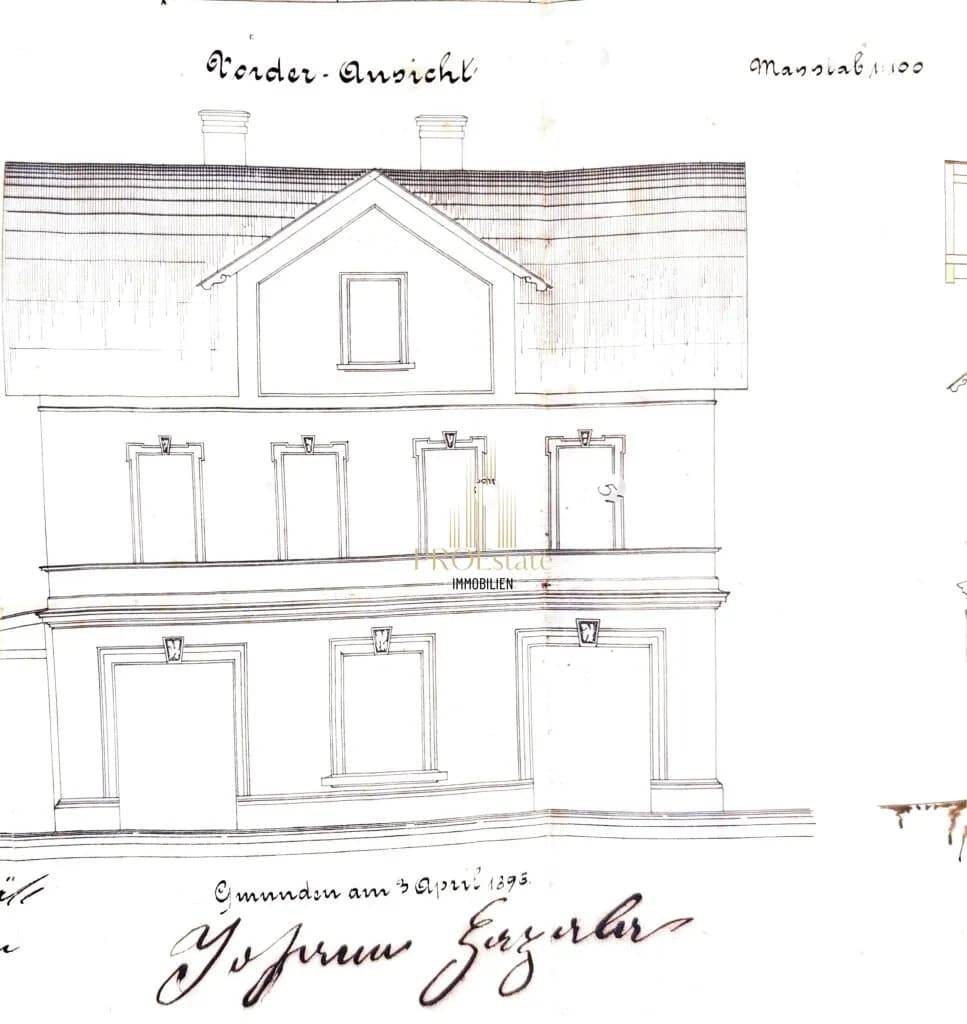 Vorder-Ansicht
Masstab 1:100
PROEstate
IMMOBILIEN
Gmunden am 3 April 1893.
Johann